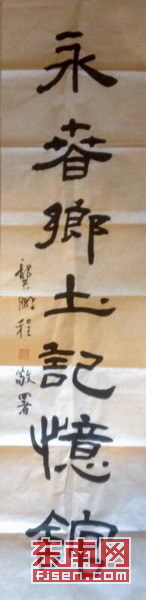 永春鄉土記憶館
龔鵬程 敬署
东南网
FJSEN.COM